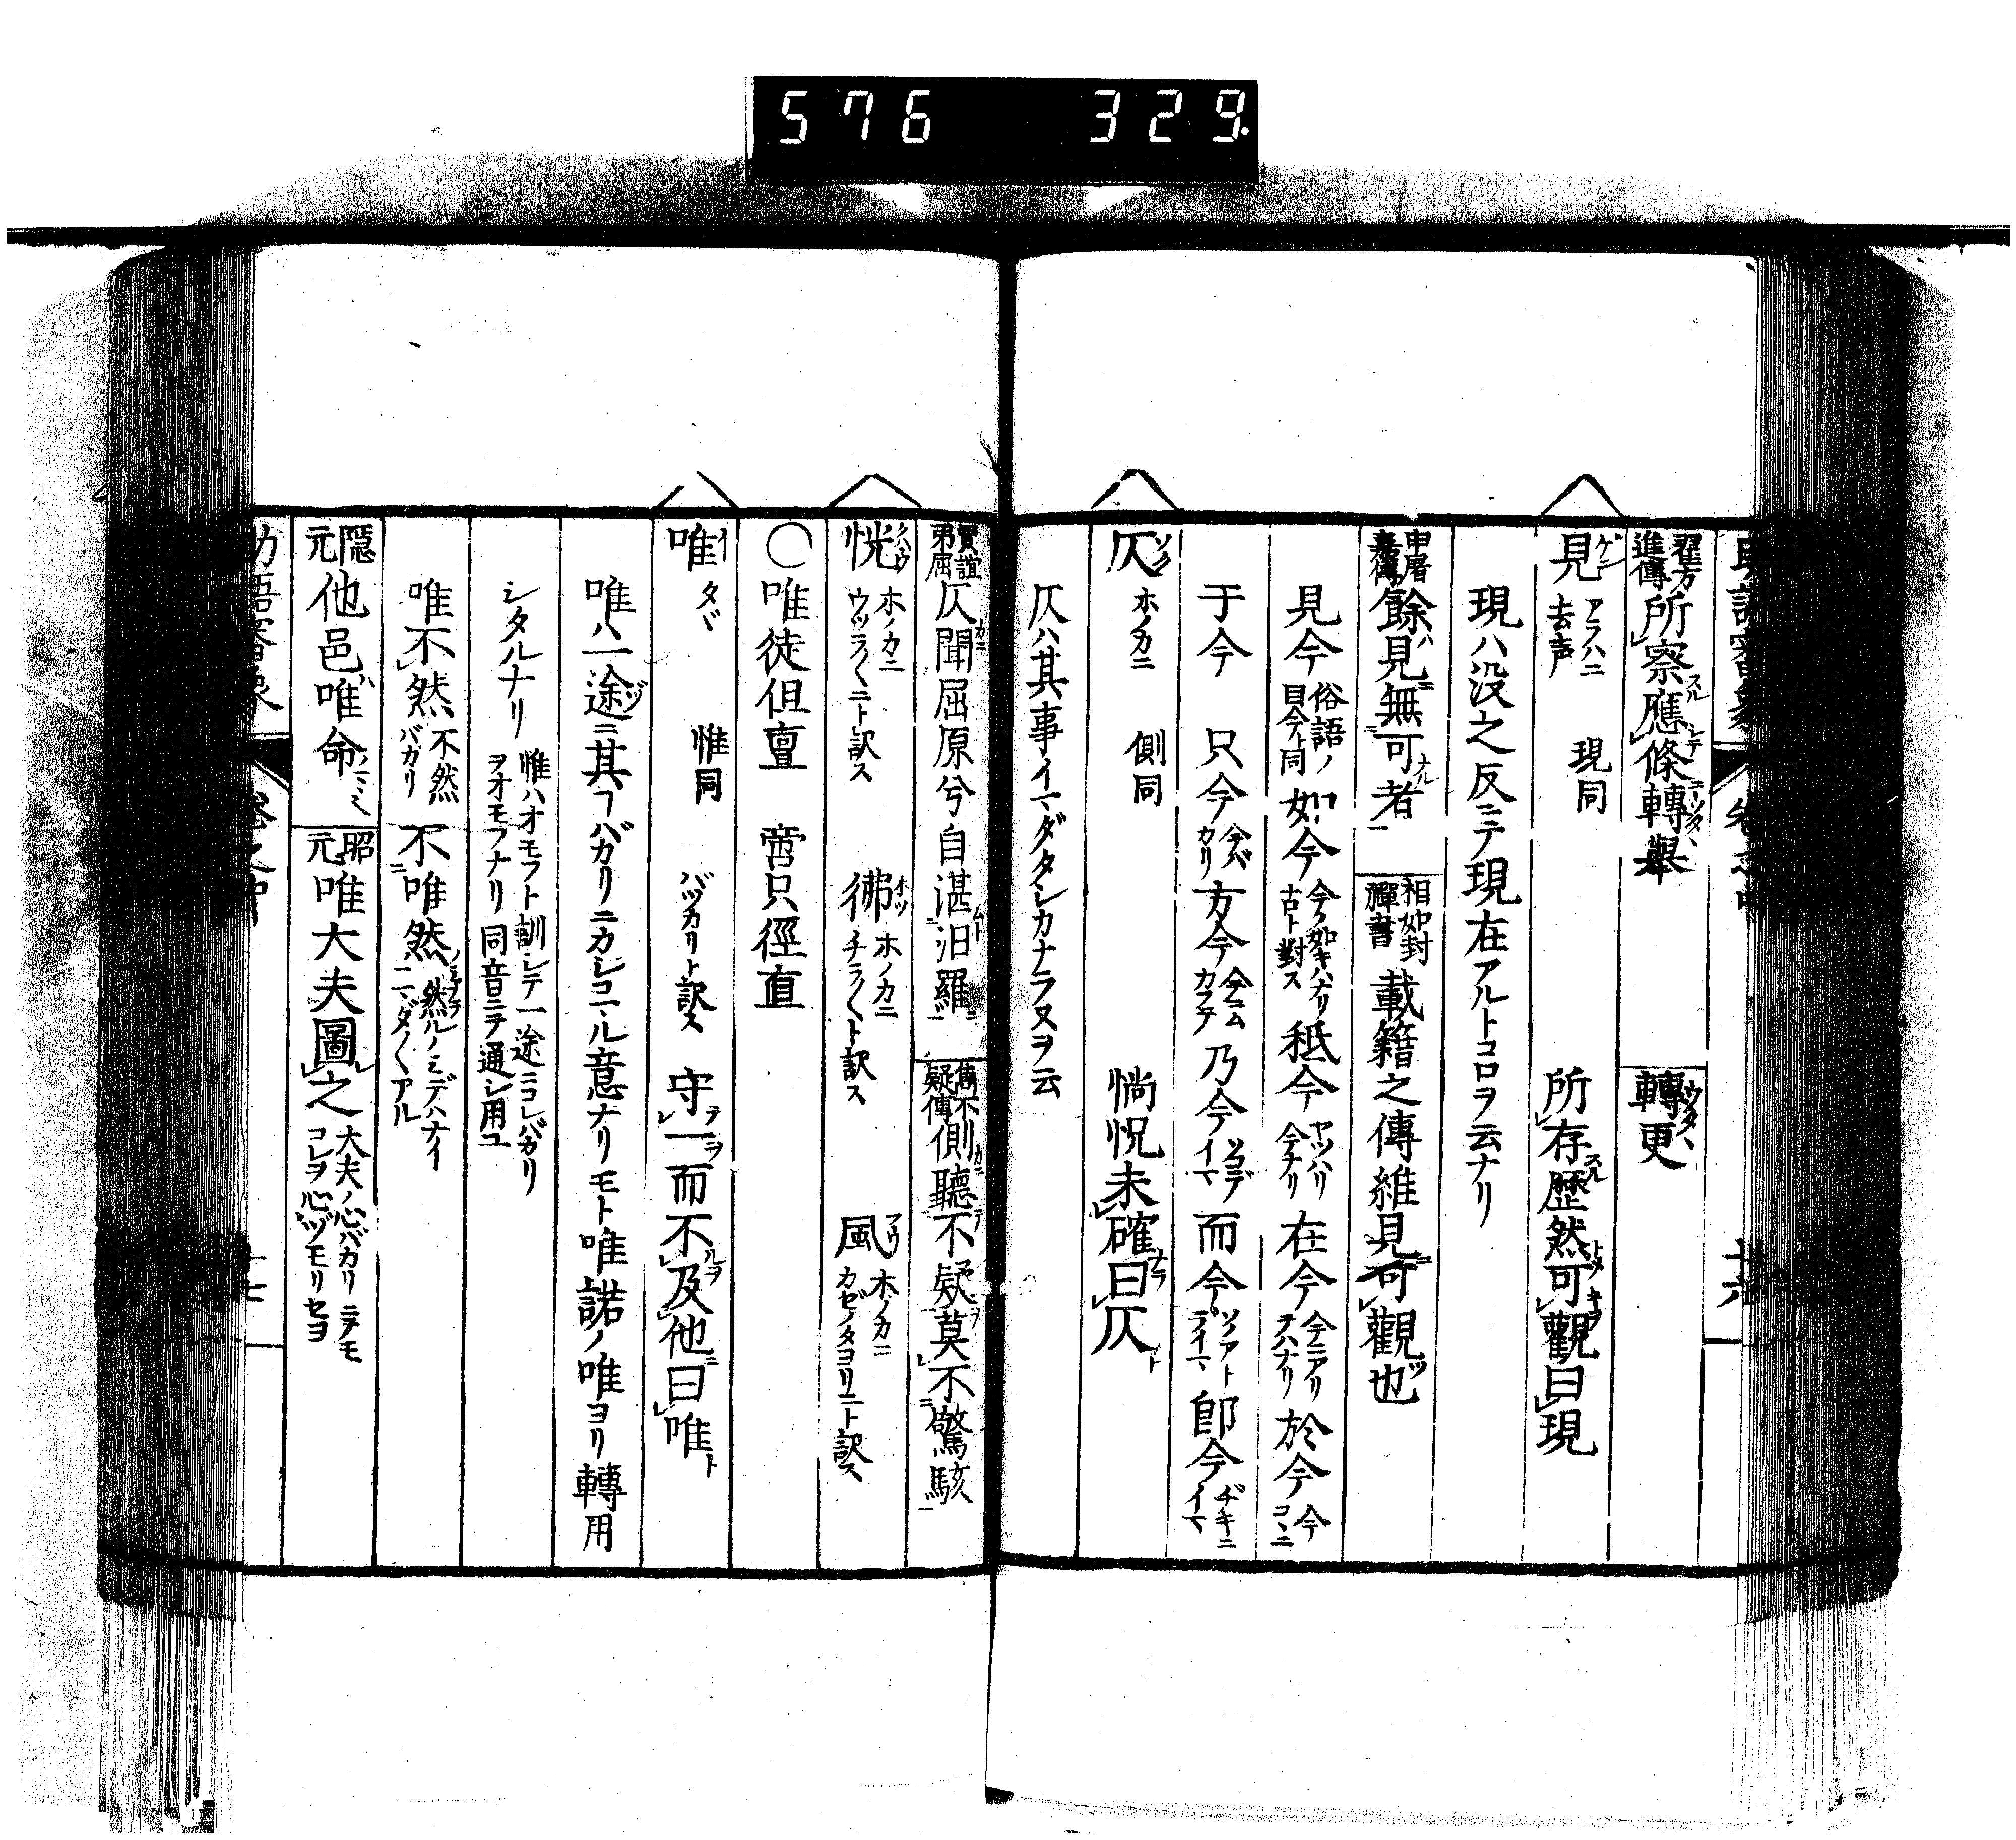 576 329.
翟方進傳 所察應條轉擧 轉更
見 アラハニ 去声 現同 所存歴然可觀曰現
現ハ没之反ニテ現在アルトコロヲ云ナリ
申屠嘉傳 餘見無可者 相如封禪書 載籍之傳維見可觀也
見今 俗語ノ目今ト同 如今 今ノ如キハナリ古ト對ス 秪今 ヤツハリ今ナリ 在今 今ニアリテハナリ 於今 今コヽニ
于今 只今 今バカリ 方今 今ニムカフテ 乃今 ソコデイマ 而今 ソノアトデイマ 即今 ヂキニイマ
仄 ソク ホノカニ 側同 惝怳未確曰仄
仄ハ其事イマダタシカナラヌヲ云
賈誼弟屈 仄聞屈原兮自湛汨羅 雋不疑傳 側聽不疑莫不驚駭
恍 ホノカニ ウツラ〱ニト訳ス 彿 ホノカニ チラ〱ト訳ス 風 ホノカニ カゼノタヨリニト訳ス
〇唯徒但亶 啻只徑直
唯 イ タヾ 惟同 バツカリト訳ス 守一而不及他曰唯
唯ハ一途ニ其フバカリニカシコマル意ナリモト唯諾ノ唯ヨリ轉用
シタルナリ 惟ハオモフト訓シテ一途ニコレバカリヲオモフナリ同音ニテ通シ用ユ
唯不然 不然バカリ 不唯然 然ルノミデハナイニマダ〱アル
隠元 他邑唯命 昭元 唯大夫圖之 大夫ノ心バカリニテモコレヲ心ヅモリセヨ